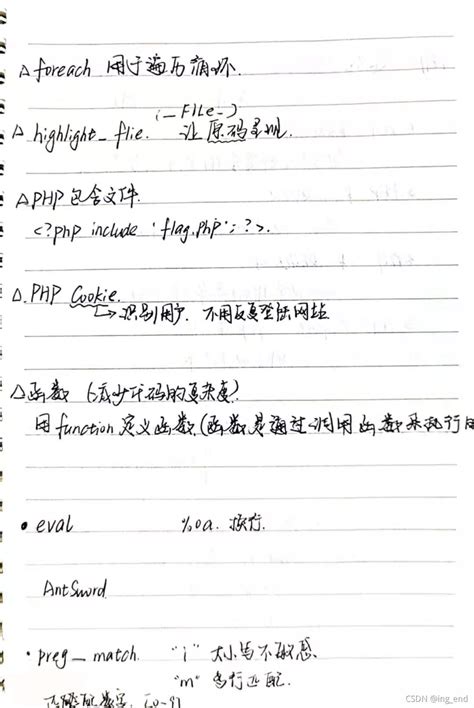 △ foreach 用于遍历循环.
(__FILE__)
△ highlight_flie. 让原码呈现.
△ PHP包含文件.
<?php include 'flag.php'; ?>.
△. PHP Cookie.
→识别用户. 不用反复登陆网站
△函数 (减少代码的复杂度)
用function定义函数.(函数是通过调用函数来执行的
• eval %0a. 换行.
AntSword
• preg_match. "i" 大小写不敏感.
"m" 多行匹配.
数字. [0-9]
CSDN @ing_end